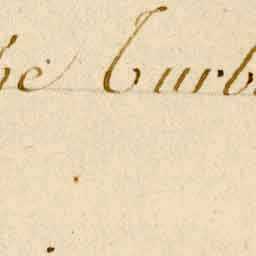 he Curb